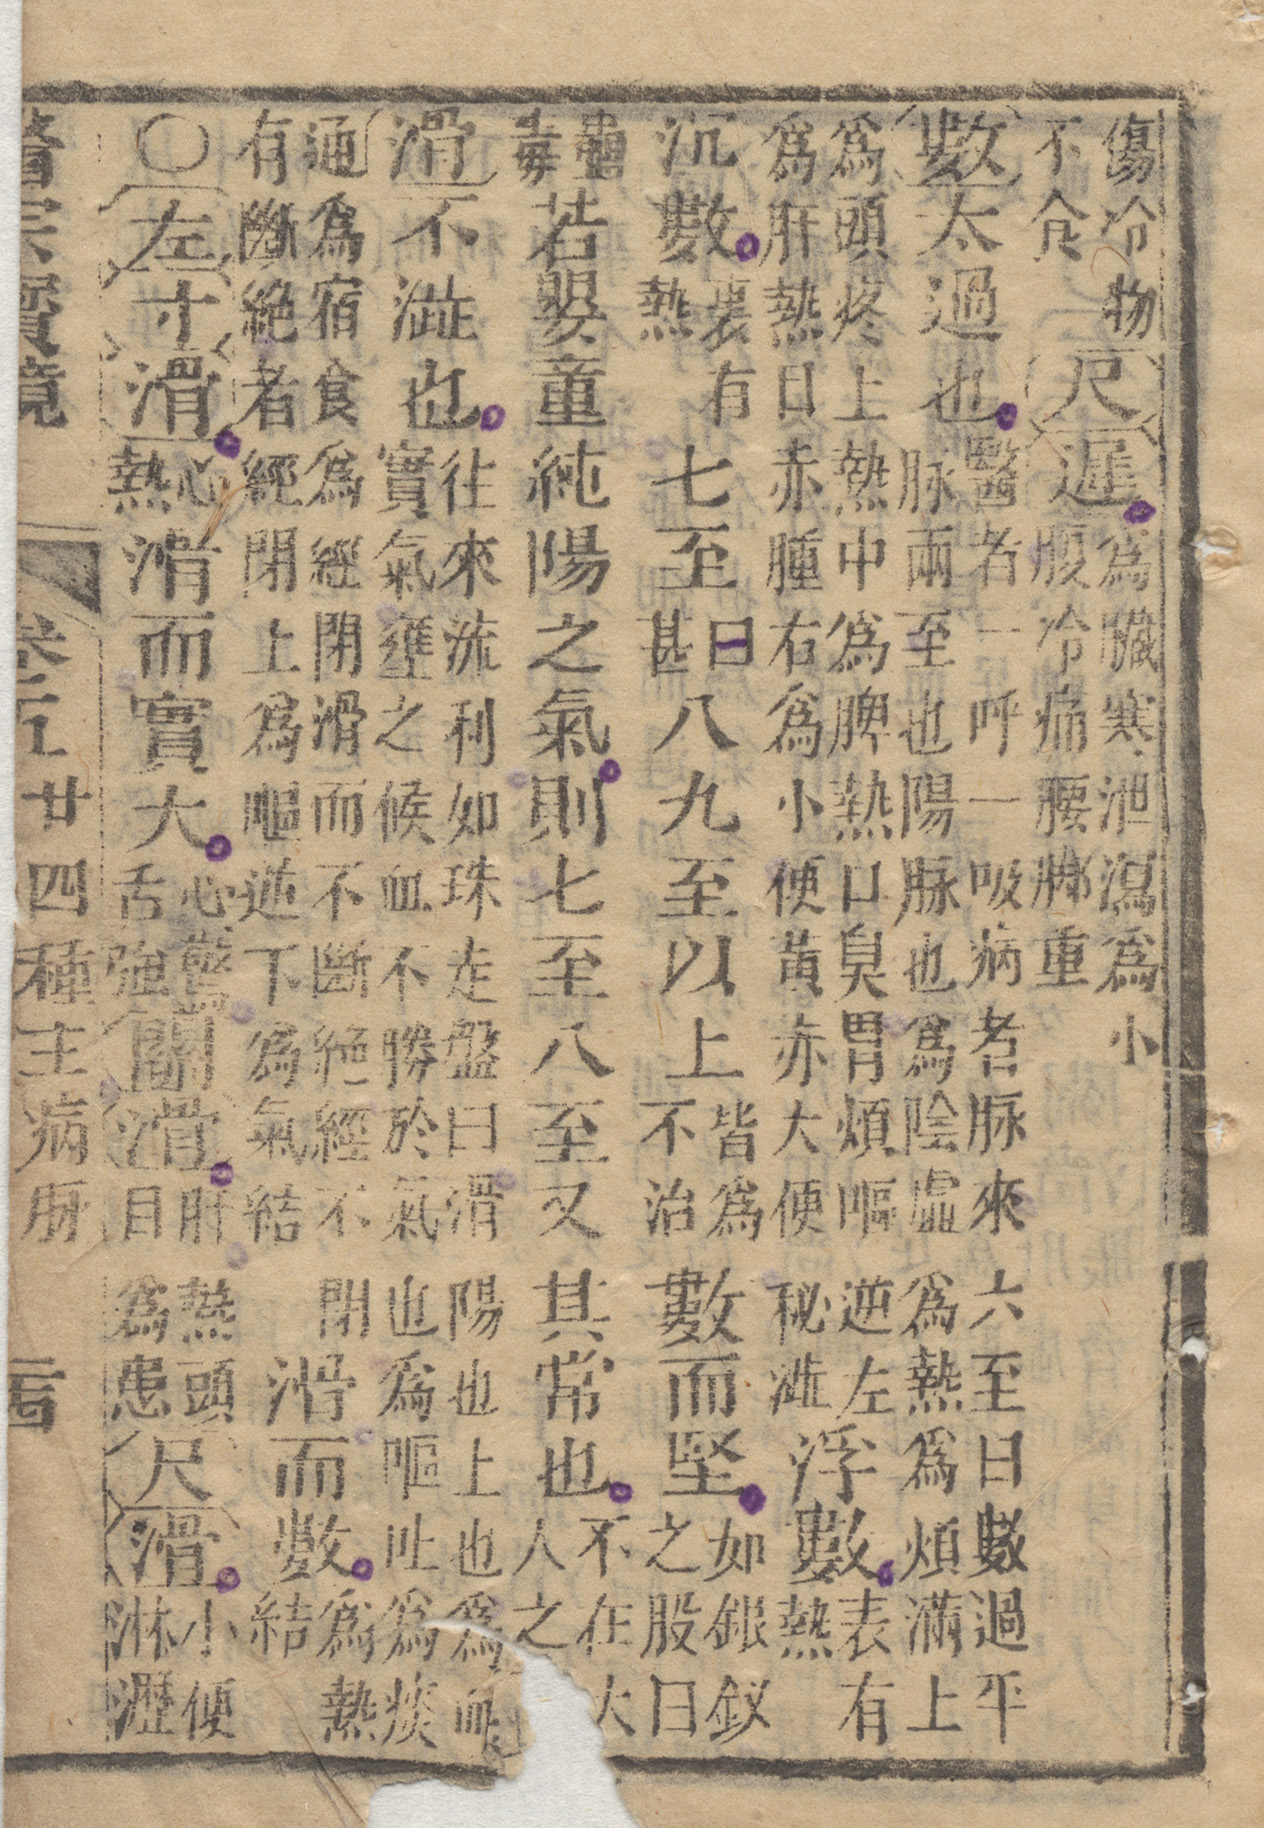 傷冷物
不食
尺遲
為臓寒泄瀉為小
腹冷痛腰脚重
數太過也
醫者一呼一吸病者脉來六至曰數過平
脉兩至也陽脉也為陰虛為熱為煩滿上
為頭疼上熱中為脾熱口臭胃煩嘔逆左
為肝熱目赤腫右為小便黃赤大便秘澁
浮數
表有
熱
沉數
裏有
熱
七至
曰
甚
八九至以上
皆為
不治
數而堅
如銀釵
之股曰
蠱
毒
若嬰童純陽之氣則七至八至又其常也
不在大
人之
滑不澁也
往來流利如珠走盤曰滑陽也上也為血
實氣壅之候血不勝於氣也為嘔吐為痰
通為宿食為經閉滑而不斷絕經不閉
有斷絕者經閉上為嘔逆下為氣結
滑而數
為熱
結
〇左寸滑
心
熱
滑而實大
心驚
舌強
關滑
肝熱頭
目為患
尺滑
小便
淋瀝
醫宗寶鏡
卷
廿四種主病脉